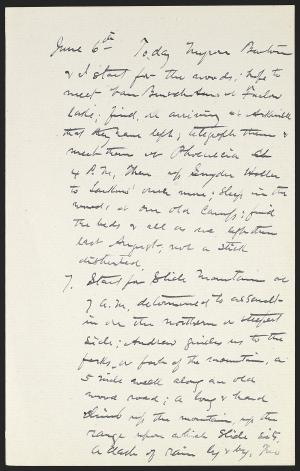 June 6th To.day Myron Benton
& I start for the woods; hope to
meet Van Benschoten at Furlow
Lake; find, on arriving at Arkville
that they have left; telegraph them &
meet them at Phoenicia at
4 P.M. Then up Snyder Hollow
to Larkins' once more; sleep in the
woods at our old Camp; find
the beds & all as we left them
last August, not a stick
disturbed.
7. Start for Slide Mountain at
7 A.M. determined to assault
it on the northern or steepest
side; Andrew guides us to the
forks, or foot of the mountain, a
5 mile walk along an old
wood road; a long & hard
climb up the mountain, up the
range upon which Slide sits,
A dash of rain by & by. The